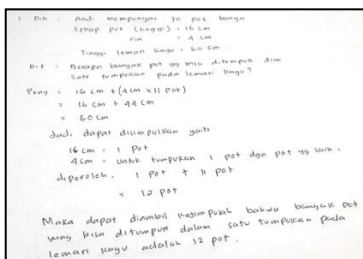 1. Dik : Andi mempunyai 30 pot bunga
Setiap pot (tinggi) = 16 cm
= 4 cm
Tinggi lemari kayu = 60 cm
D.t : Berapa banyak pot yg bisa ditumpuk dlm
satu tumpukan pada lemari kayu?
Peny = 16 cm + (4 cm x 11 pot)
= 16 cm + 44 cm
= 60 cm
Jadi dapat disimpulkan yaitu
16 cm = 1 pot
4 cm = untuk tumpukan 1 pot dgn pot yg lain.
diperoleh. 1 pot + 11 pot
= 12 pot
Maka dapat diambil kesimpulan bahwa banyak pot
yang bisa ditumpuk dalam satu tumpukan pada
lemari kayu adalah 12 pot.